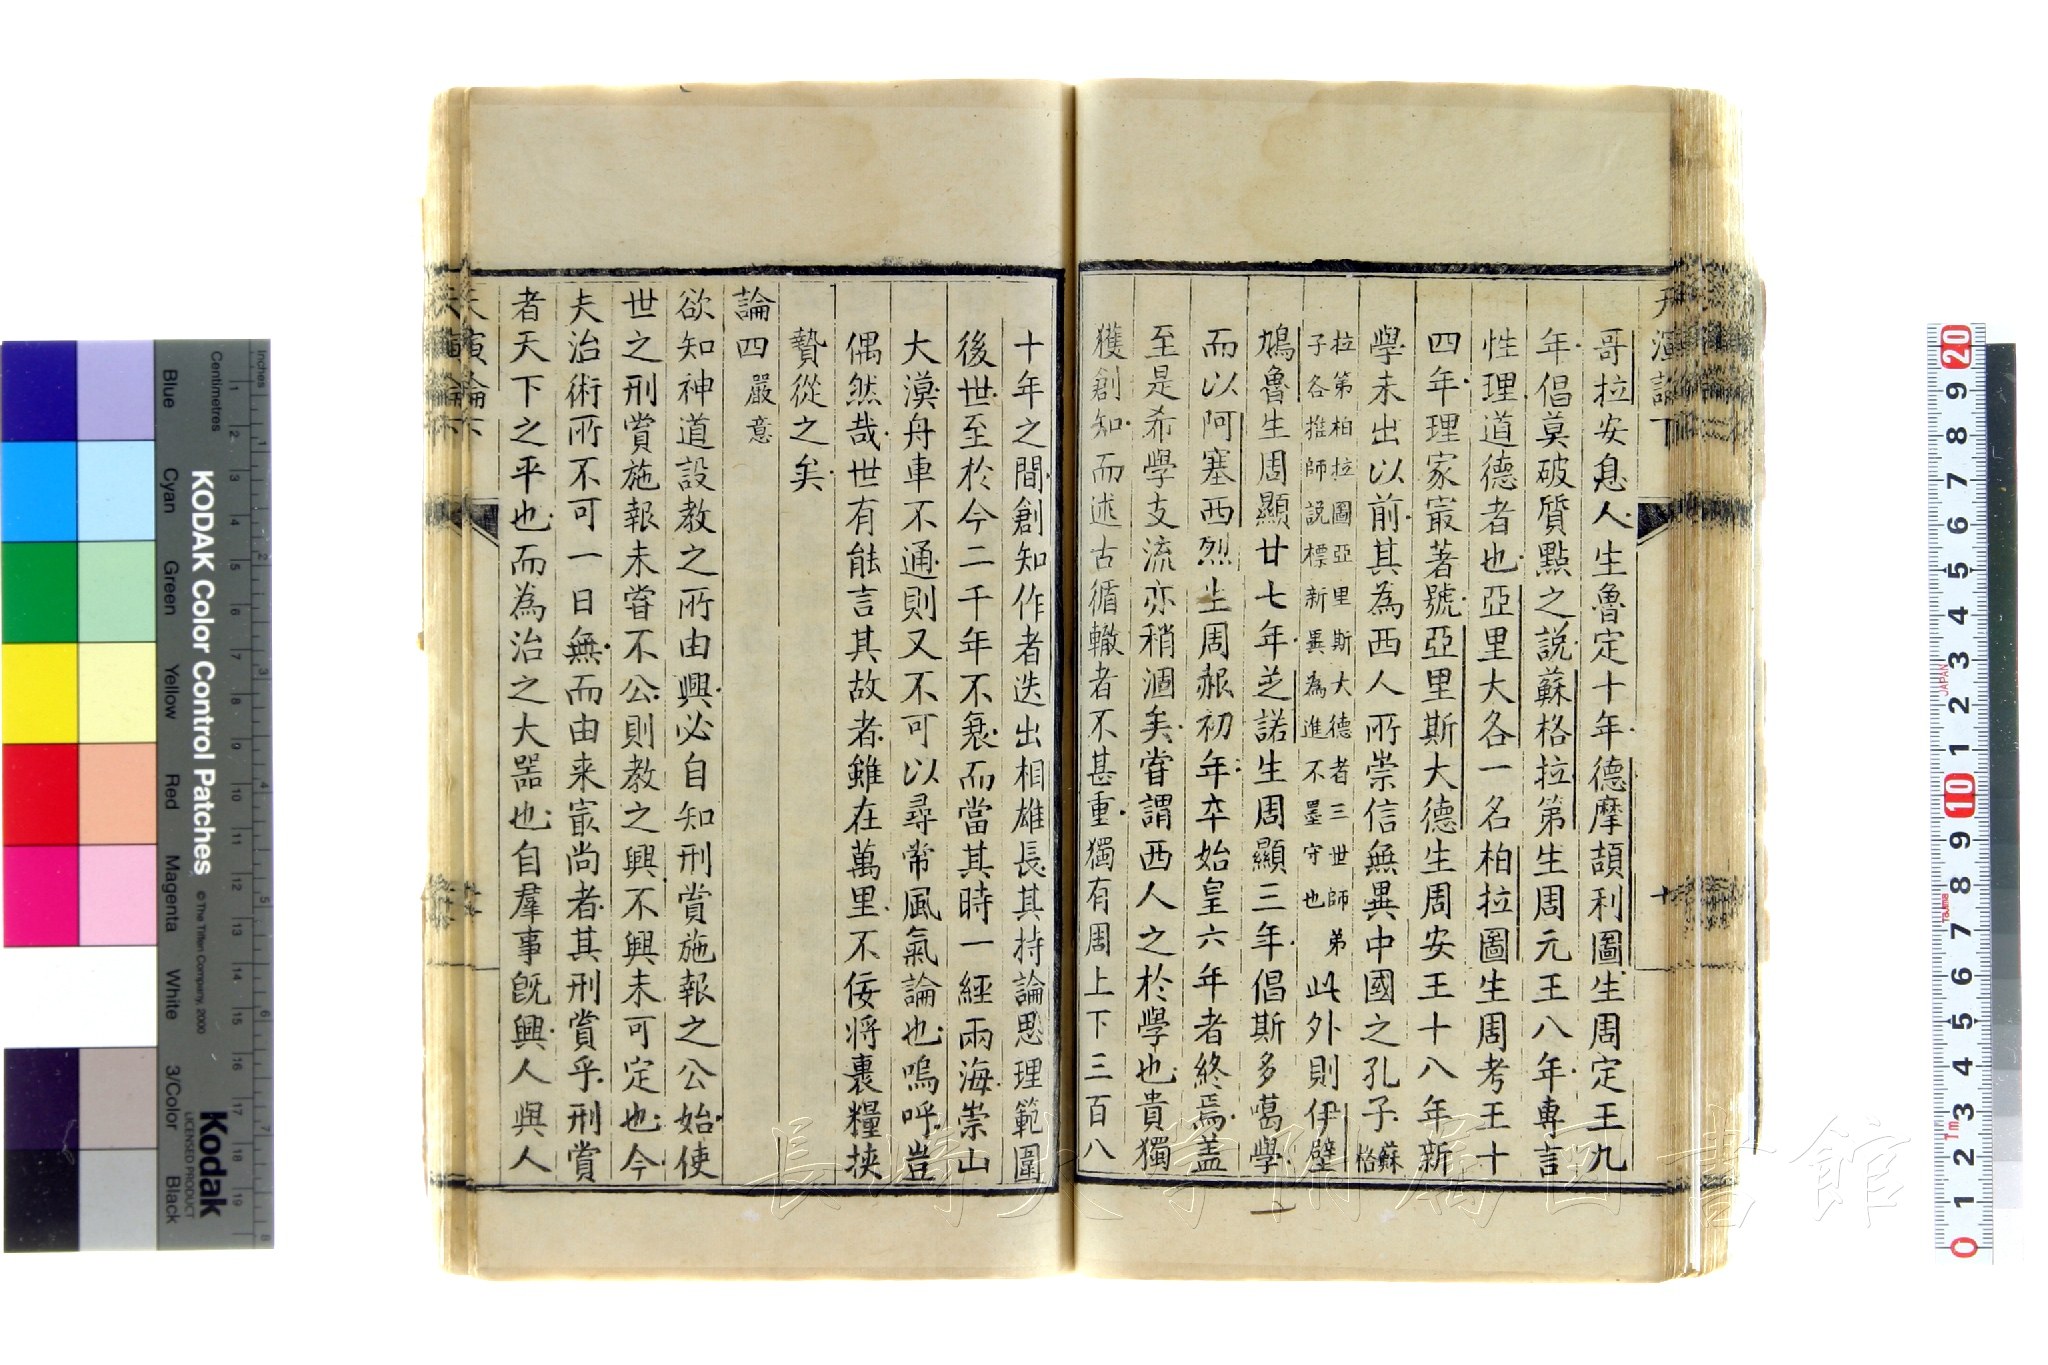 天演論下
哥拉安息人生魯定十年德摩頡利圖生周定王九
年倡莫破質點之說蘇格拉第生周元王八年專言
性理道德者也亞里大各一名柏拉圖生周考王十
四年理家㝡著號亞里斯大德生周安王十八年新
學未出以前其為西人所崇信無異中國之孔子蘇格
拉第柏拉圖亞里斯大德者三世師弟
子各推師說標新異為進不墨守也
此外則伊壁
鳩魯生周顯廿七年芝諾生周顯三年倡斯多噶學
而以阿塞西烈生周赧初年卒始皇六年者終焉蓋
至是希學支流亦稍涸矣嘗謂西人之於學也貴獨
獲創知而述古循轍者不甚重獨有周上下三百八
十年之間創知作者迭出相雄長其持論思理範圍
後世至於今二千年不衰而當其時一經兩海崇山
大漠舟車不通則又不可以尋常風氣論也嗚呼豈
偶然哉世有能言其故者雖在萬里不佞將裹糧挾
贄從之矣
論四嚴意
欲知神道設教之所由興必自知刑賞施報之公始使
世之刑賞施報未嘗不公則教之興不興未可定也今
夫治術所不可一日無而由来㝡尚者其刑賞乎刑賞
者天下之平也而為治之大器也自羣事既興人與人
天演論下
KODAK Color Control Patches
© The Tiffen Company, 2000
Kodak
LICENSED PRODUCT
Inches
Centimetres
Blue
Cyan
Green
Yellow
Red
Magenta
White
3/Color
Black
JAPAN
長崎大学附属図書館